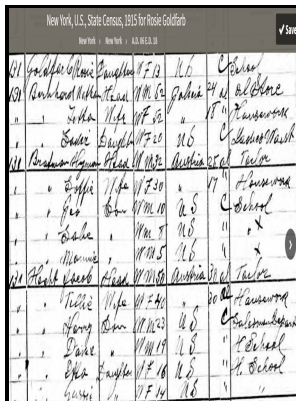 New York, U.S., State Census, 1915 for Rosie Goldfarb
New York › New York › A.D. 06 E.D. 18
Save
131 Goldfarb Rosie Daughter W F 13 U S C School
131 Bernhard Nathan Head W M 62 24 al Store
" " Wife W F 52 18 " Housework
" " Daughter W F 20 U S C
131 Hyman Head W M 32 Austria 25 al Tailor
" " Wife W F 30 " 17 " Housework
" " Geo Son W M 10 U S C School
" " W M 8 U S " x
" " W M 5 U S " x
131 Jacob Head W M 50 Austria 30 al Tailor
" " Tillie Wife W F 40 " 30 al Housework
" " Harry Son W M 23 U S C Salesman
" " " W M 19 U S " H School
" " Daughter W F 16 U S " H School
" " " W F 14 U S " "